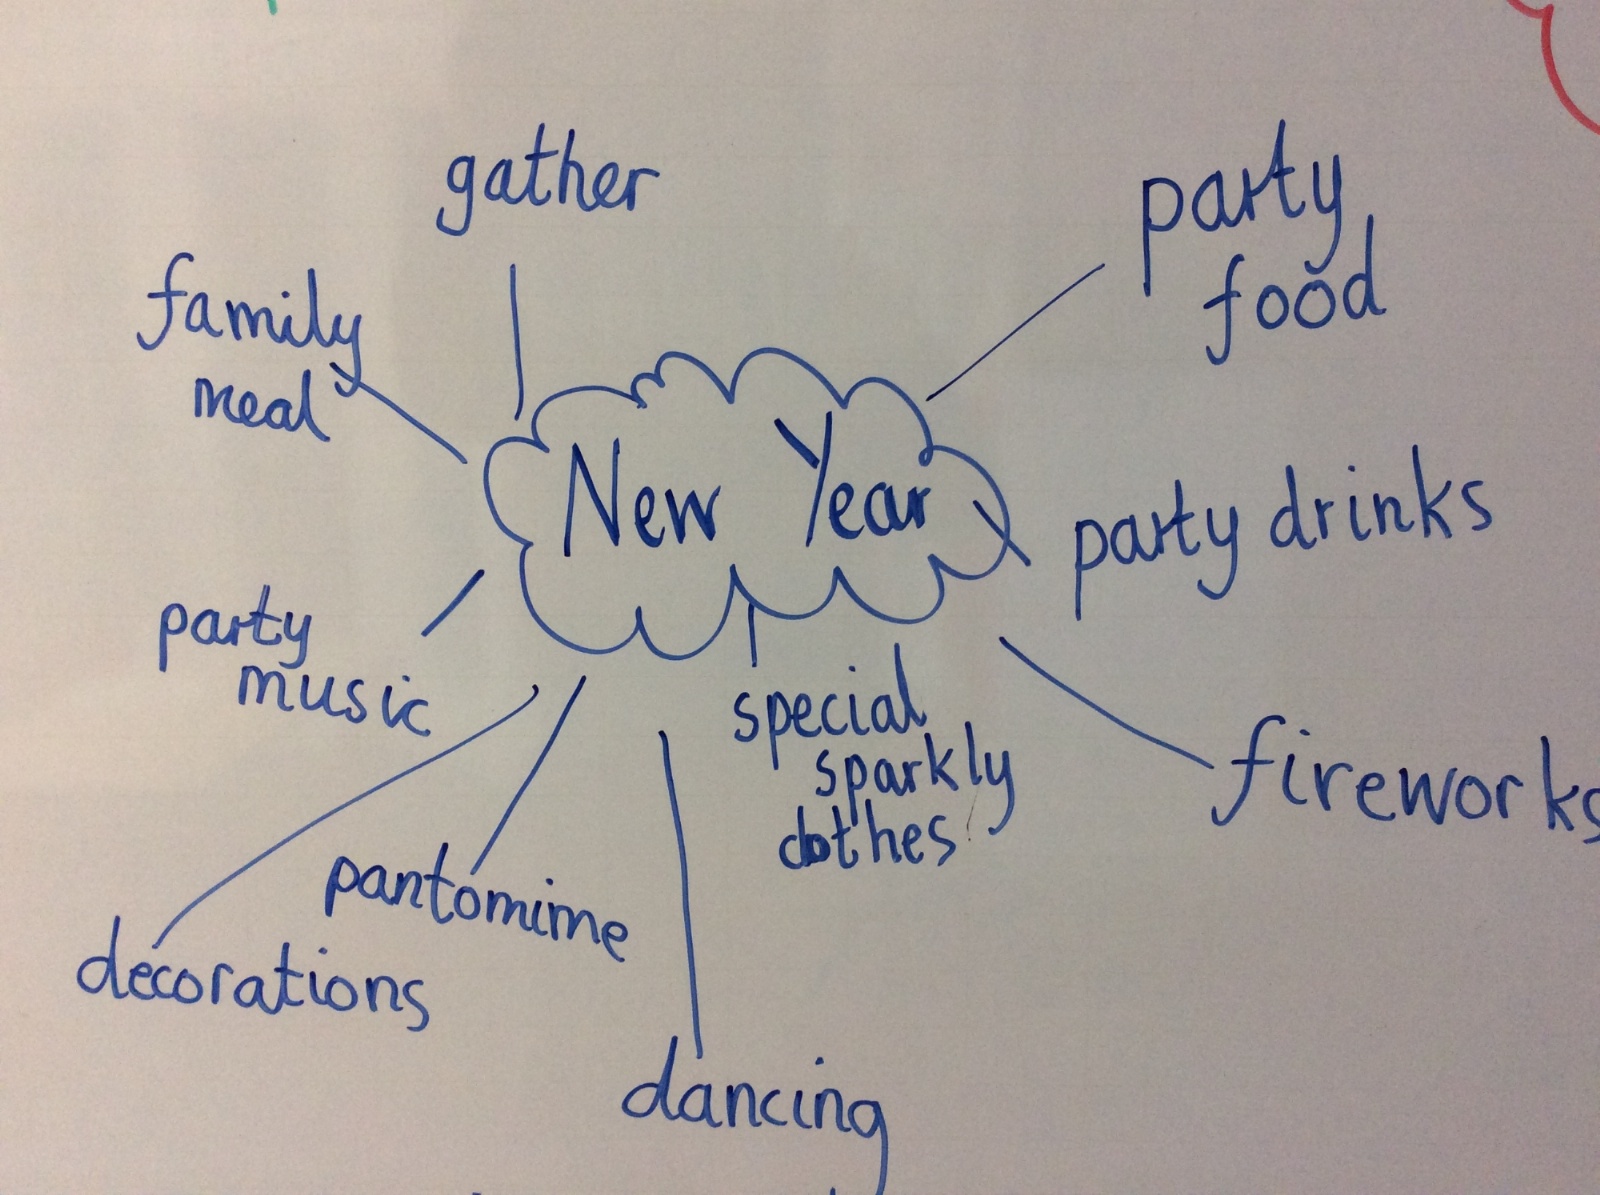 gather
party
food
family
meal
New Year
party drinks
party
music
special
sparkly
clothes
fireworks
pantomime
decorations
dancing